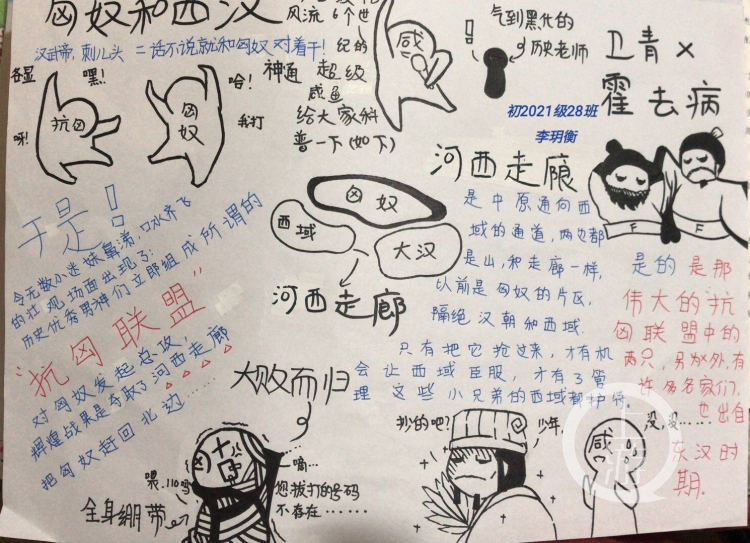 匈奴和西汉
汉武帝,刺儿头 二话不说就和匈奴对着干!
各显
嘿!
呀!
抗匈
匈奴
哈!
我打
神通
风流6个世
纪的
超级
咸鱼
给大家科
普一下(如下)
感
!
气到黑化的
历史老师
卫青×
霍去病
初2021级28班
李玥衡
F
F
于是!
令无数小迷妹鼻涕口水齐飞
的壮观场面出现了:
历史优秀男神们立即组成所谓的
"抗匈联盟"
对匈奴发起总攻,
辉煌战果是夺取了河西走廊
把匈奴赶回北边……
匈奴
西域
大汉
河西走廊
河西走廊
是中原通向西
域的通道,两边都
是山,和走廊一样,
以前是匈奴的片区,
隔绝汉朝和西域.
只有把它抢过来,才有机
会让西域臣服,才有了管
理这些小兄弟的西域都护府.
是的是那
伟大的抗
匈联盟中的
两只,另外,有
许多名家们,
也出自
东汉时
期.
大败而归
喂,110吗
匈
全身绷带
一嘀…
您拨打的号码
不存在……
抄的吧?
少年,
没,没……
感